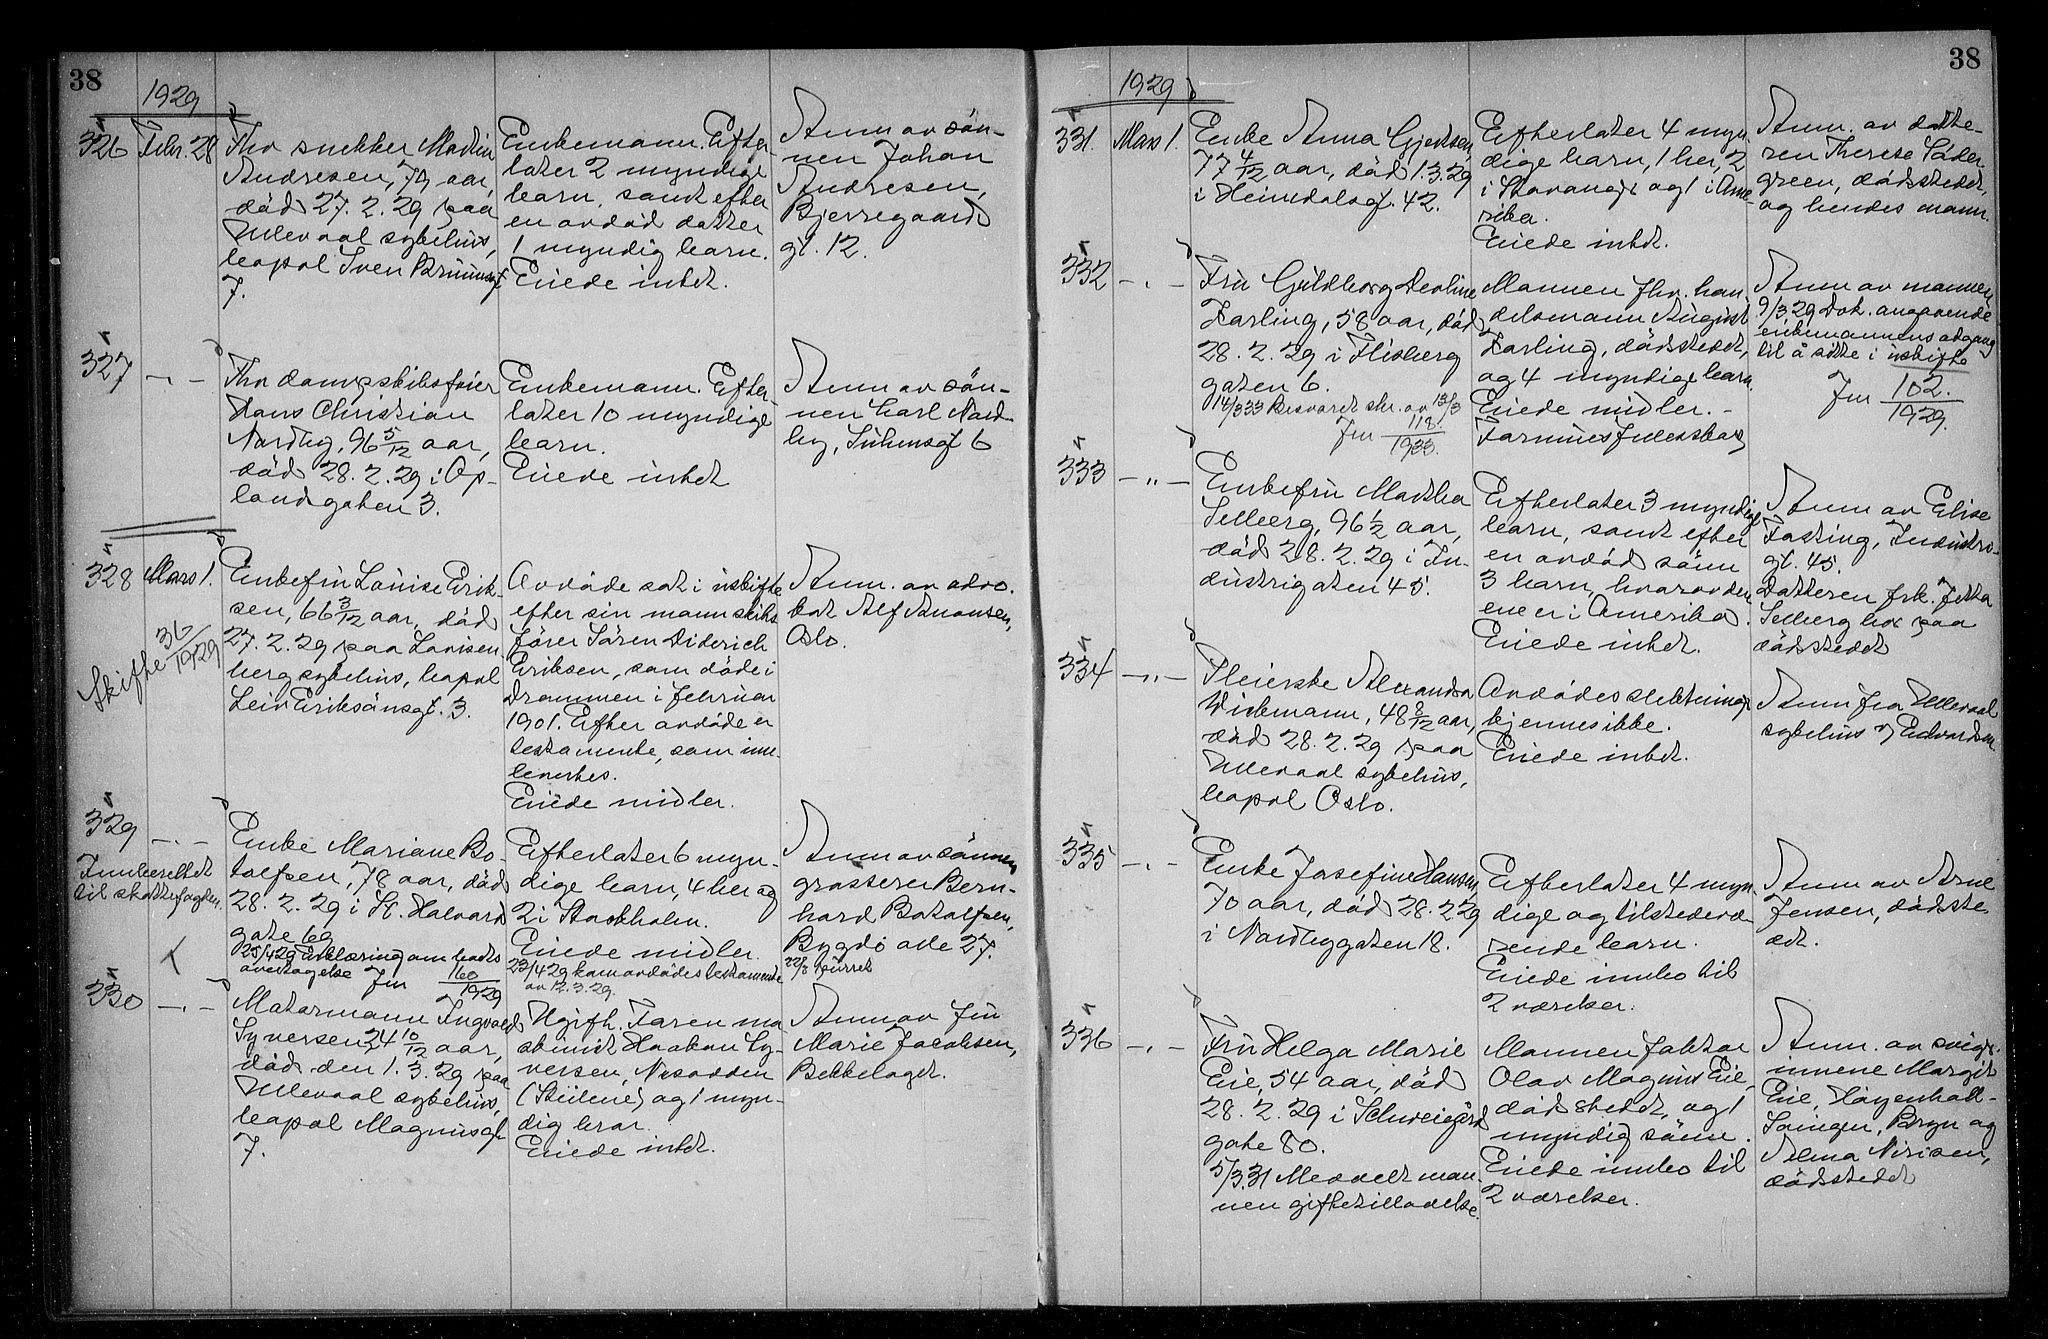 38
1929
326 Febr. 28
Fhv snekker Martin
Andresen, 79 aar,
død 27. 2. 29 paa
Ullevaal sykehus,
bopæl Sven Bruunsgt
7.
Enkemann. Efter-
later 2 myndige
barn, samt efter
en avdød datter
1 myndig barn.
Eiede intet.
Anm. av søn-
nen Johan
Andresen,
Bjerregaards
gt. 12.
327 -"-
Fhv dampskibsfører
Hans Christian
Nordby, 96 5/12 aar,
død 28. 2. 29 i Op-
landsgaten 3.
Enkemann. Efter-
later 10 myndige
barn.
Eiede intet
Anm av søn-
nen Carl Nord-
by, Suhmsgt 6
328 Mars 1.
Skifte 36/1929
Enkefru Louise Erik-
sen, 66 3/12 aar, død
27. 2. 29 paa Lovisen-
berg sykehus, bopæl
Leiv Eriksönsgt. 3.
Avdøde sat i uskifte
efter sin mann skibs-
fører Sören Diderich
Eriksen, som døde i
Drammen i februar
1901. Efter avdøde er
testamente, som inn-
levertes.
Eiede midler.
Anm. av advo-
kat Alf Amonsen,
Oslo.
329 -"-
Innberettet
til skattefogden.
Enke Mariane Bo-
tolfsen, 78 aar, død
28. 2. 29 i St. Halvard
gate 69
25/4 29 Erklæring om boets
overtagelse Jnr 160/1929
Efterlater 6 myn-
dige barn, 4 her og
2 i Stockholm.
Eiede midler.
23/4 29 kom avdødes testamente
av 12. 3. 29.
Anm av sønnen
grosserer Bern-
hard Botolfsen,
Bygdö alle 27.
22/3 purret
330 -"-
Matermann Ingvald
Syversen, 24 10/12 aar,
död den 1. 3. 29 paa
Ullevaal sykehus,
bopæl Magnusgt
7.
Ugift. Faren ma-
skinist Haakon Sy-
versen, Nesodden
(Steilene) og 1 myn-
dig bror.
Eiede intet.
Anm av fru
Marie Jacobsen,
Bekkelaget.
38
1929
331. Mars 1.
Enke Anna Gjertsen,
77 4/12 aar, død 1. 3. 29
i Heimdalsgt. 42.
Efterlater 4 myn-
dige barn, 1 her, 2
i Stavanger og 1 i Ame-
rika.
Eiede intet.
Anm. av datte-
ren Therese Söder-
green, dödsstedet,
og hendes mann.
332 -"-
Fru Guldborg Devline
Karling, 58 aar, död
28. 2. 29 i Flisberg
gaten 6.
14/3 33 Besvaret skr. av 13/3
Jnr 118/1933.
Mannen fhv. han-
delsmann August
Karling, dödsstedet,
og 4 myndige barn
Eiede midler. -
Formues fellesskap
Anm av mannen
9/3 29 Dok. angaaende
enkemannens adgang
til å sitte i uskifte
Jnr 102./1929.
333 -"-
Enkefru Martha
Selberg, 96 1/2 aar,
død 28. 2. 29 i In-
dustrigaten 45.
Efterlater 3 myndige
barn, samt efter
en avdød sønn
3 barn, hvorav den
ene er i Amerika.
Eiede intet.
Anm av Elise
Fasting, Industri-
gt. 45.
Datteren frk. Jetta
Selberg bor paa
dödsstedet
334 -"-
Pleierske Alexandra
Wickmann, 48 8/12 aar,
død 28. 2. 29 paa
Ullevaal sykehus,
bopæl Oslo.
Avdødes slektninger
kjennes ikke.
Eiede intet.
Anm fra Ullevaal
sykehus v/ Edvardsen
335 -"-
Enke Josefine Hansen,
70 aar, død 28. 2. 29
i Nordbygaten 18.
Efterlater 4 myn-
dige og tilstedevæ-
rende barn.
Eiede innbo til
2 værelser.
Anm av Arne
Jensen, dødsste-
det.
336 -"-
Fru Helga Marie
Eie, 54 aar, død
28. 2. 29 i Schweigård
gate 80.
5/3.31 Meddelt man-
nen giftetilladelse.
Mannen faktor
Olav Magnus Eie,
dødsstedet, og 1
myndig sønn.
Eiede innbo til
2 værelser.
Anm. av svige-
innene Margit
Eie, Höyenhall-
Svingen, Bryn og
Selma Nirisen,
dødsstedet